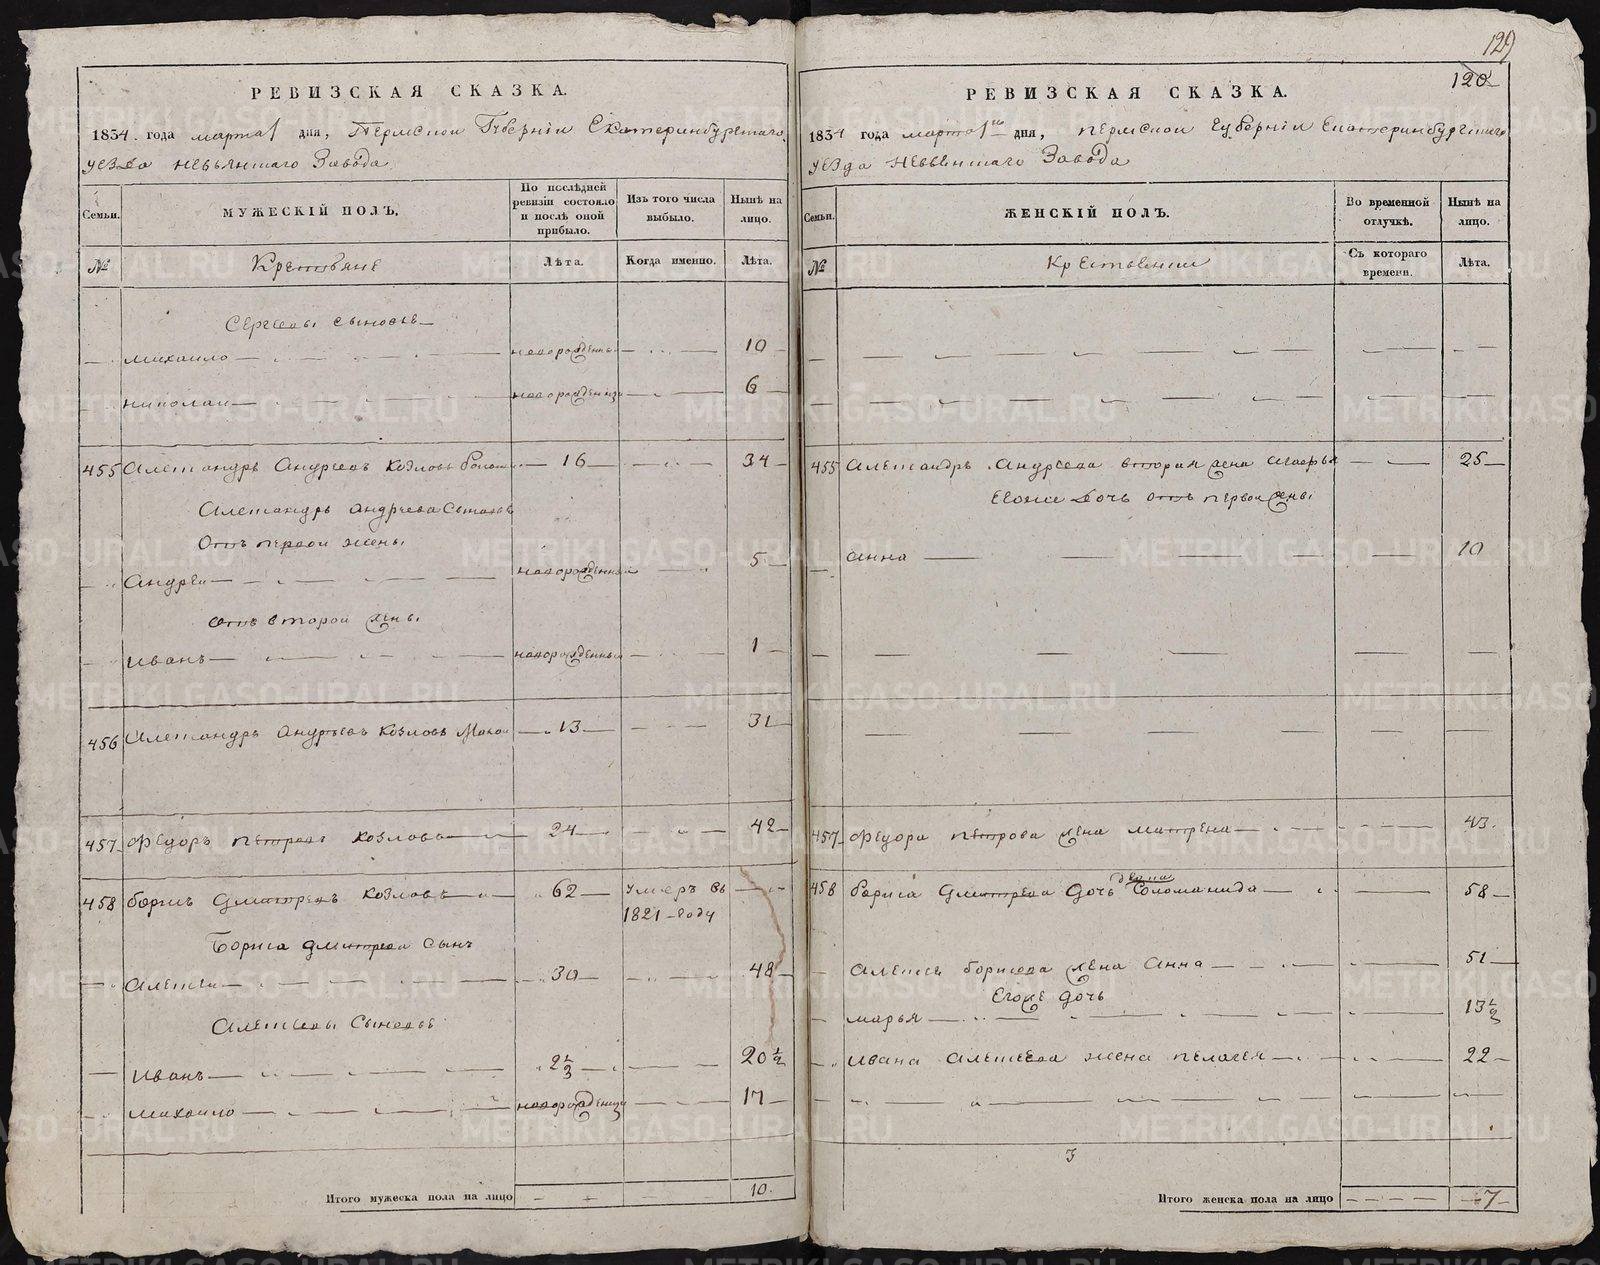 129
120
РЕВИЗСКАЯ СКАЗКА.
1834 года марта 1 дня, Пермской Губерніи Екатеринбургскаго
уезда Невьянскаго Завода
Семьи.
МУЖЕСКІЙ ПОЛЪ,
По послѣдней ревизіи состояло и послѣ оной прибыло.
Изъ того числа выбыло.
Нынѣ на лицо.
№
Крестьяне
Лѣта.
Когда именно.
Лѣта.
Сергеевы сыновье
Михаило новорожденны 10
Николаи новорожденны 6
455 Александръ Андреевъ Козловъ 16 34
Александръ Андреева Сыновь
Отъ первой жены
Андреи новорожденной 5
Отъ второй жены
Иванъ новорожденный 1
456 Александръ Андреевъ Козловъ 13 31
457 Федоръ Петровъ Козловъ 24 42
458 Борисъ Дмитреевъ Козловъ 62 Умеръ въ
1821 году
Бориса Дмитреева Сынъ
Алексеи 30 48
Алексеевы Сыновье
Иванъ 2 1/2 20 1/2
Михаило новорожденны 17
Итого мужеска пола на лицо 10
РЕВИЗСКАЯ СКАЗКА.
1834 года марта 1 дня, Пермской Губерніи Екатеринбургскаго
уезда Невьянскаго Завода
Семьи.
ЖЕНСКІЙ ПОЛЪ.
Во временной отлучкѣ.
Нынѣ на лицо.
№
Съ котораго времени.
Лѣта.
455 Александръ Андреева вторая жена Агафья 25
Егоже дочь отъ первой жены
Анна 10
457 Федора Петрова жена Матрена 43
458 Бориса Дмитреева дочь Соломанида 58
Алексея Борисова жена Анна 51
Егоже дочь
Марья 13 1/2
Ивана Алексеева жена Пелагея 22
Итого женска пола на лицо 7